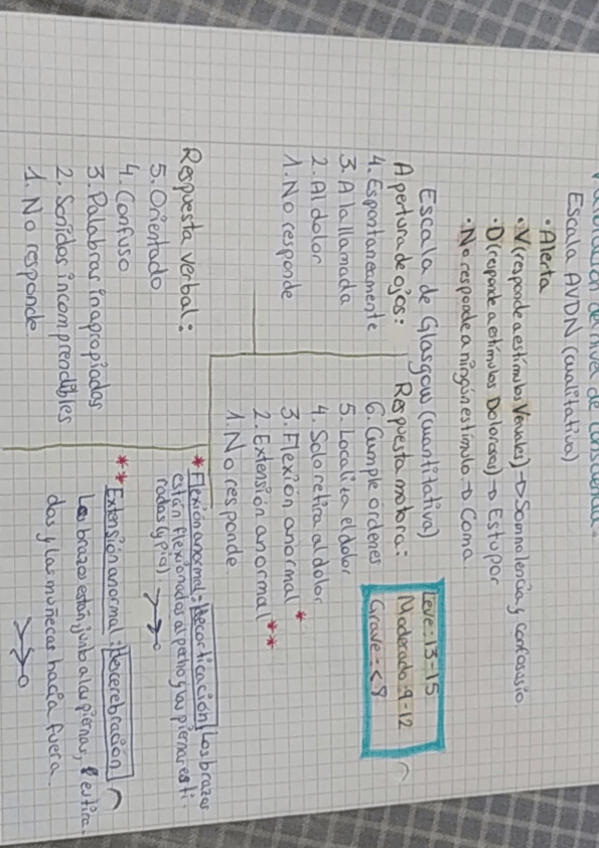 Valoración del nivel de consciencia.
Escala AVDN (cualitativa)
• Alerta
• V (responde a estímulos Verbales) → Somnolencia y confusión
• D (responde a estímulos Dolorosos) → Estupor
• No responde a ningún estímulo → Coma
Escala de Glasgow (cuantitativa)
Apertura de ojos:
4. Espontaneamente
3. A la llamada
2. Al dolor
1. No responde
Respuesta motora:
6. Cumple ordenes
5. Localiza el dolor
4. Solo retira al dolor
3. Flexión anormal *
2. Extensión anormal **
1. No responde
Leve: 13-15
Moderado: 9-12
Grave: <9
Respuesta verbal:
5. Orientado
4. Confuso
3. Palabras inapropiadas
2. Sonidos incomprendibles
1. No responde.
* Flexión anormal = decorticación, los brazos
están flexionados al pecho y las piernas esti-
radas (y pia)
** Extensión anormal = descerebración
Los brazos están junto a las piernas, estira-
dos y las muñecas hacia fuera.